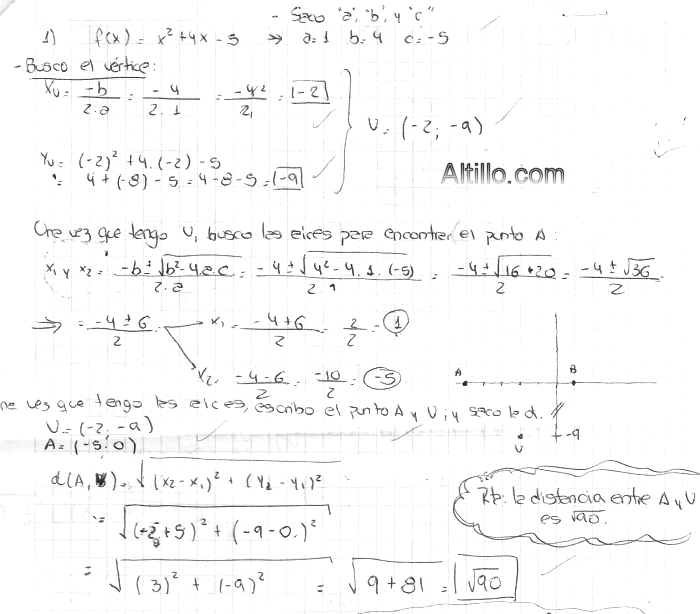 - Saco "a", "b", y "c"
1) f(x) = x² + 4x - 5 ⇒ a=1 b=4 c=-5
- Busco el vértice:
Xv = -b / 2.a = -4 / 2.1 = -4 / 2 = -2
V = (-2; -9)
Yv = (-2)² + 4.(-2) - 5
= 4 + (-8) - 5 = 4 - 8 - 5 = -9
Altillo.com
Una vez que tengo V, busco las raíces para encontrar el punto A:
x₁ y x₂ = -b ± √b² - 4.a.c / 2.a = -4 ± √4² - 4.1.(-5) / 2.1 = -4 ± √16 + 20 / 2 = -4 ± √36 / 2
⇒ = -4 ± 6 / 2 → x₁ = -4 + 6 / 2 = 2 / 2 = 1
x₂ = -4 - 6 / 2 = -10 / 2 = -5
A B
ne vez que tengo las raíces, escribo el punto A y V, y saco la d.
V = (-2; -9)
A = (-5; 0)
V -9
d(A, V) = √(x₂ - x₁)² + (y₂ - y₁)²
= √(-2 + 5)² + (-9 - 0)²
= √(3)² + (-9)² = √9 + 81 = √90
Rta: la distancia entre A y V
es √90.